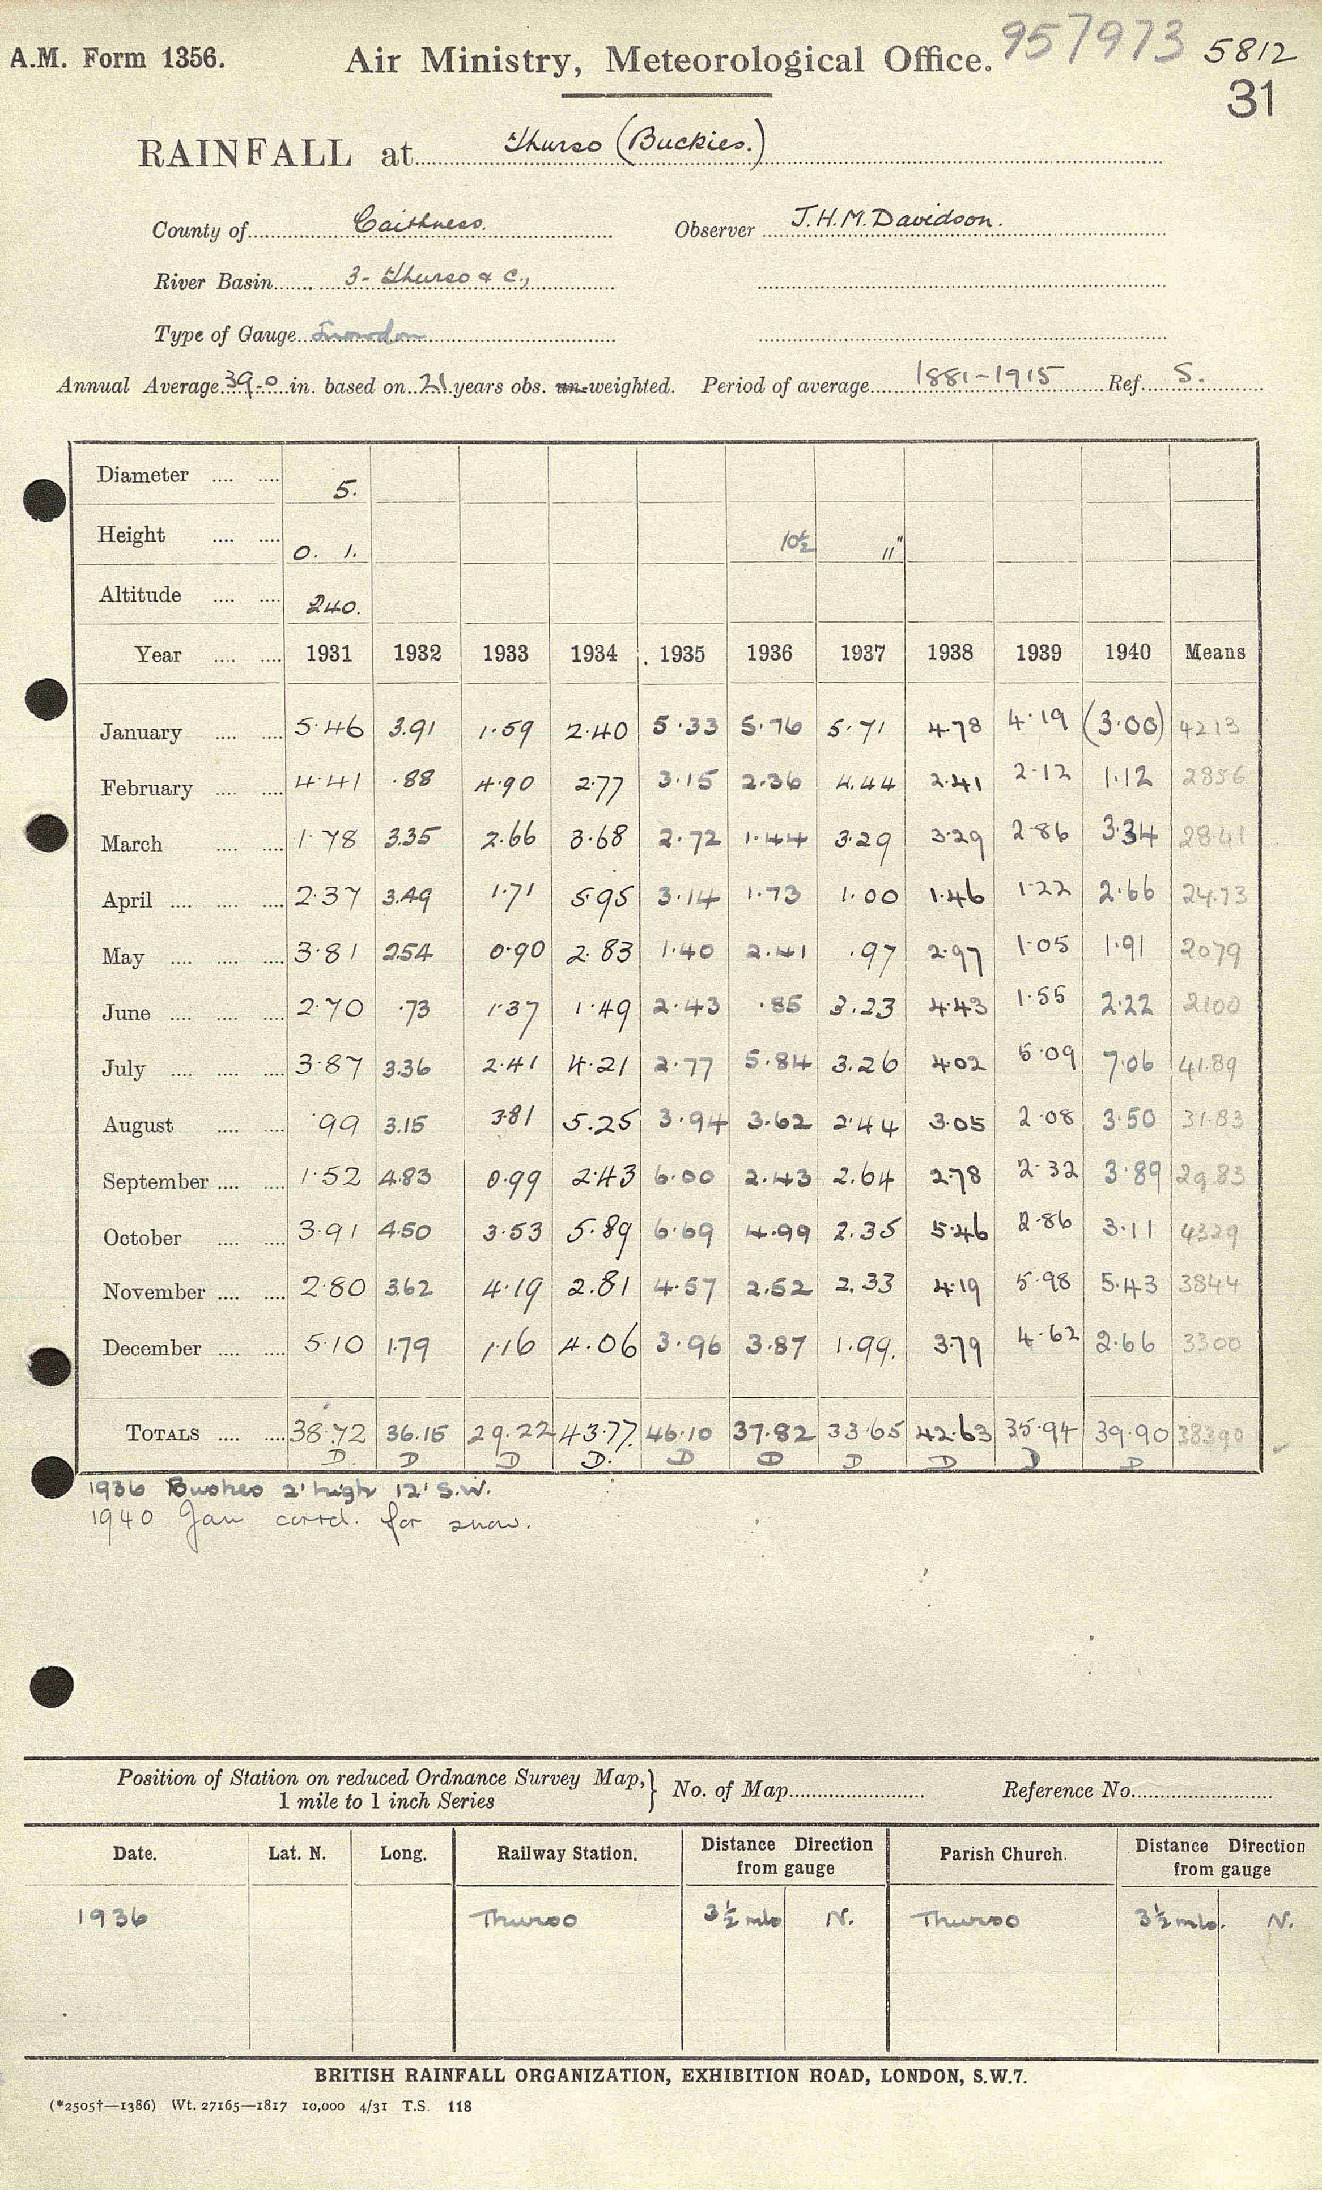 957973 5812
A.M. Form 1356. Air Ministry, Meteorological Office.
31
RAINFALL at Thurso (Buckies.)
County of Caithness. Observer J.H.M. Davidson.
River Basin 3- Thurso & C.,
Type of Gauge Snowdon
Annual Average 39.0 in. based on 21 years obs. un-weighted. Period of average 1881-1915 Ref. S.
Diameter 5.
Height 0. 1. 10½ 11"
Altitude 240.
Year 1931 1932 1933 1934 1935 1936 1937 1938 1939 1940 Means
January 5.46 3.91 1.59 2.40 5.33 5.76 5.71 4.78 4.19 (3.00) 4213
February 4.41 .88 4.90 2.77 3.15 2.36 4.44 2.41 2.12 1.12 2856
March 1.78 3.35 2.66 3.68 2.72 1.44 3.29 3.29 2.86 3.34 2841
April 2.37 3.49 1.71 5.95 3.14 1.73 1.00 1.46 1.22 2.66 24.73
May 3.81 2.54 0.90 2.83 1.40 2.41 .97 2.97 1.05 1.91 2079
June 2.70 .73 1.37 1.49 2.43 .85 3.23 4.43 1.55 2.22 2100
July 3.87 3.36 2.41 4.21 2.77 5.84 3.26 4.02 5.09 7.06 41.89
August .99 3.15 3.81 5.25 3.94 3.62 2.44 3.05 2.08 3.50 31.83
September 1.52 4.83 0.99 2.43 6.00 2.43 2.64 2.78 2.32 3.89 29.83
October 3.91 4.50 3.53 5.89 6.69 4.99 2.35 5.46 2.86 3.11 4329
November 2.80 3.62 4.19 2.81 4.57 2.52 2.33 4.19 5.98 5.43 3844
December 5.10 1.79 1.16 4.06 3.96 3.87 1.99. 3.79 4.62 2.66 3300
TOTALS 38.72 36.15 29.22 43.77 46.10 37.82 33.65 42.63 35.94 39.90 38390
D. D D D. D D D D D D
1936 Bushes 2' high 12' S.W.
1940 Jan corrd. for snow.
Position of Station on reduced Ordnance Survey Map, 1 mile to 1 inch Series } No. of Map Reference No.
Date. Lat. N. Long. Railway Station. Distance Direction from gauge Parish Church. Distance Direction from gauge
1936 Thurso 3½ mls N. Thurso 3½ mls. N.
BRITISH RAINFALL ORGANIZATION, EXHIBITION ROAD, LONDON, S.W.7.
(*2505†—1386) Wt. 27165—1817 10,000 4/31 T.S. 118